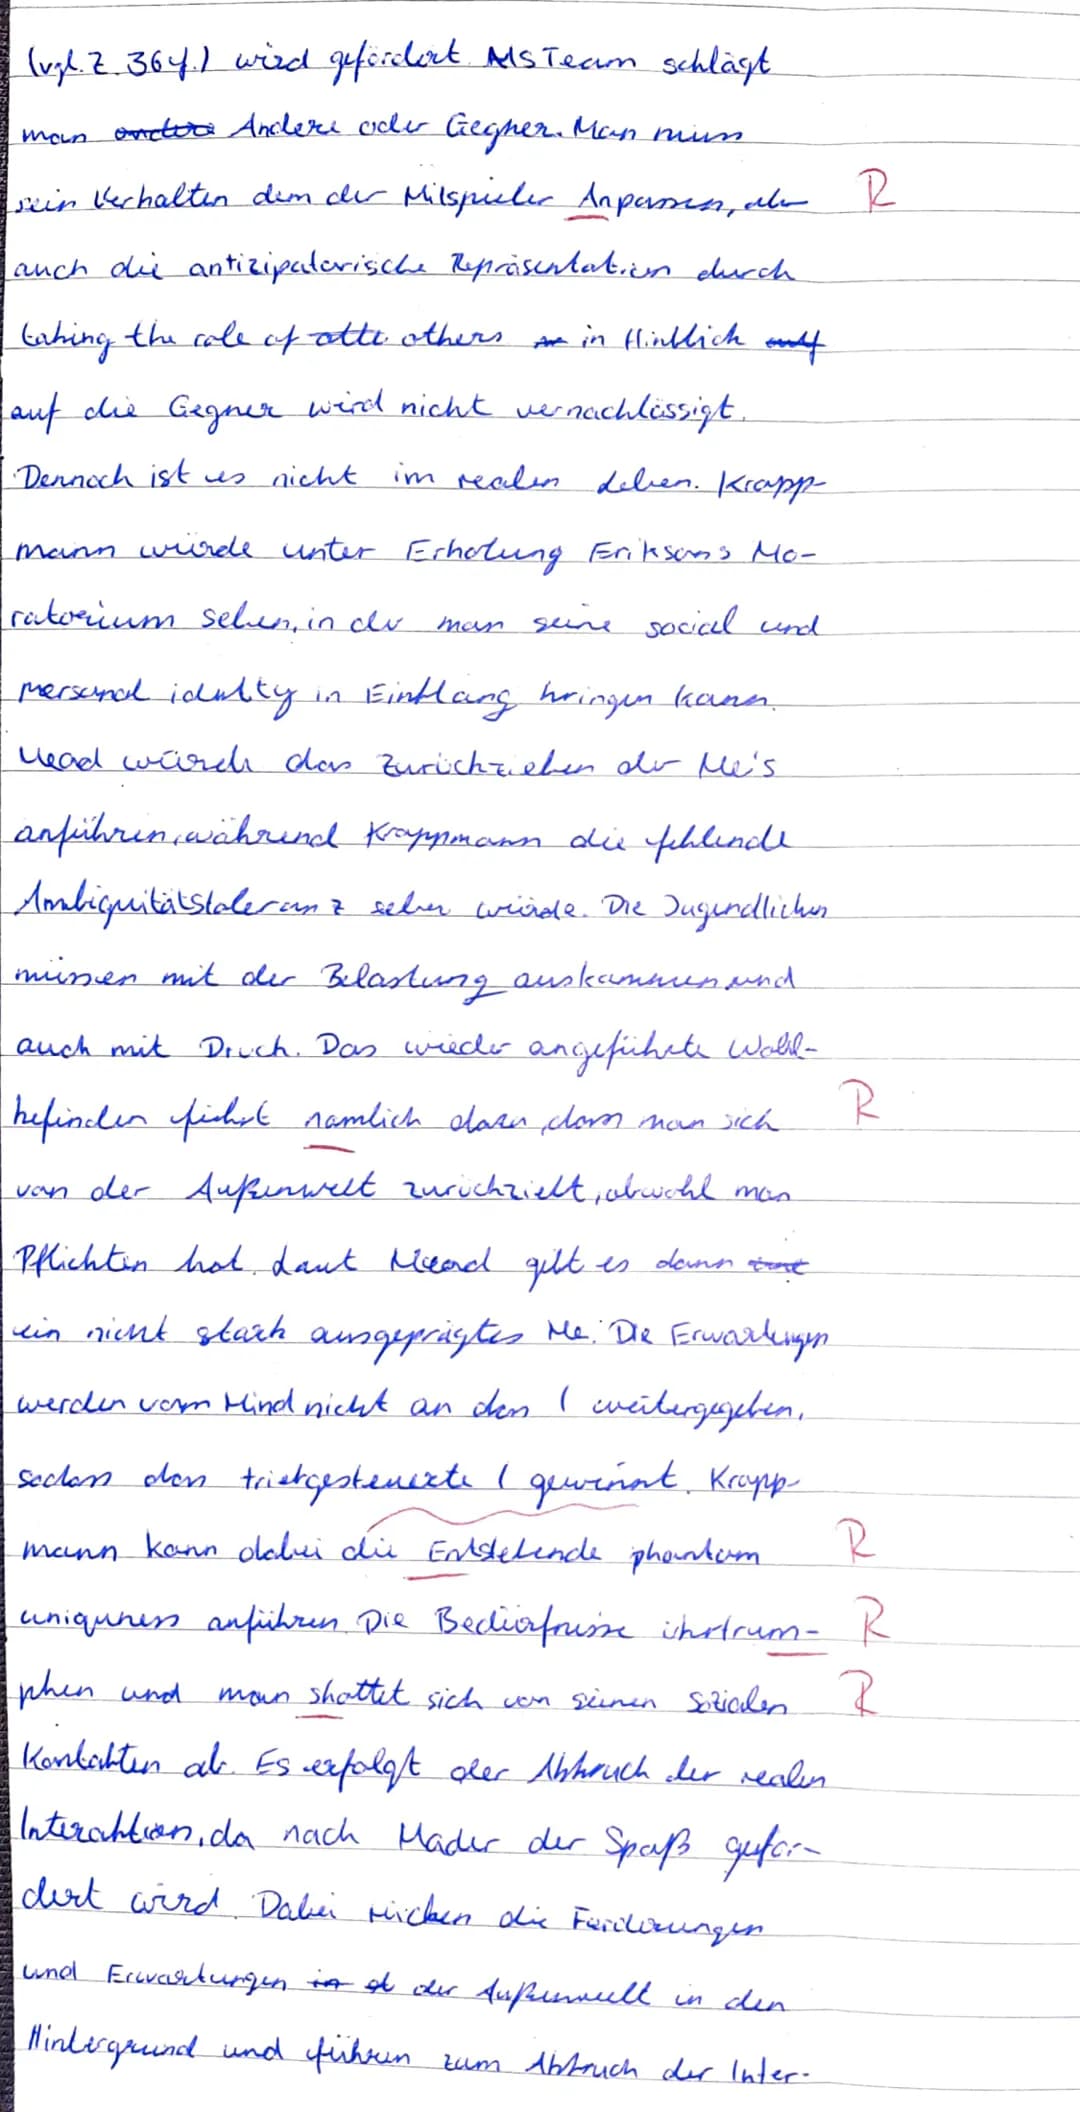 (vgl. Z. 36f.) wird gefördert. Als Team schlägt
man andere Andere oder Gegner. Man muss
sein Verhalten dem der Mitspieler Anpassen, aber R
auch die antizipatorische Repräsentation durch
taking the role of others in Hinblick auf
auf die Gegner wird nicht vernachlässigt.
Dennoch ist es nicht im realen Leben. Krapp-
mann würde unter Erholung Eriksons Mo-
ratorium sehen, in der man seine social und
personal identity in Einklang bringen kann.
Mead würde das Zurückziehen der Me's
anführen, während Krappmann die fehlende
Ambiguitätstoleranz sehen würde. Die Jugendlichen
müssen mit der Belastung auskommen und
auch mit Druck. Das wieder angeführte Wohl-
befinden führt namlich dazu, dass man sich R
von der Außenwelt zurückzieht, obwohl man
Pflichten hat. Laut Mead gilt es dann
ein nicht stark ausgeprägtes Me. Die Erwartungen
werden vom Mind nicht an den I weitergegeben,
sodass das triebgesteuerte I gewinnt. Krapp-
mann kann dabei die Entstehende phantom R
uniquness anführen. Die Bedürfnisse überstrum- R
phen und man shottet sich von seinen Sozialen R
Kontakten ab. Es erfolgt der Abbruch der realen
Interaktion, da nach Mader der Spaß gefor-
dert wird. Dabei rücken die Forderungen
und Erwartungen in der Außenwelt in den
Hintergrund und führen zum Abbruch der Inter-